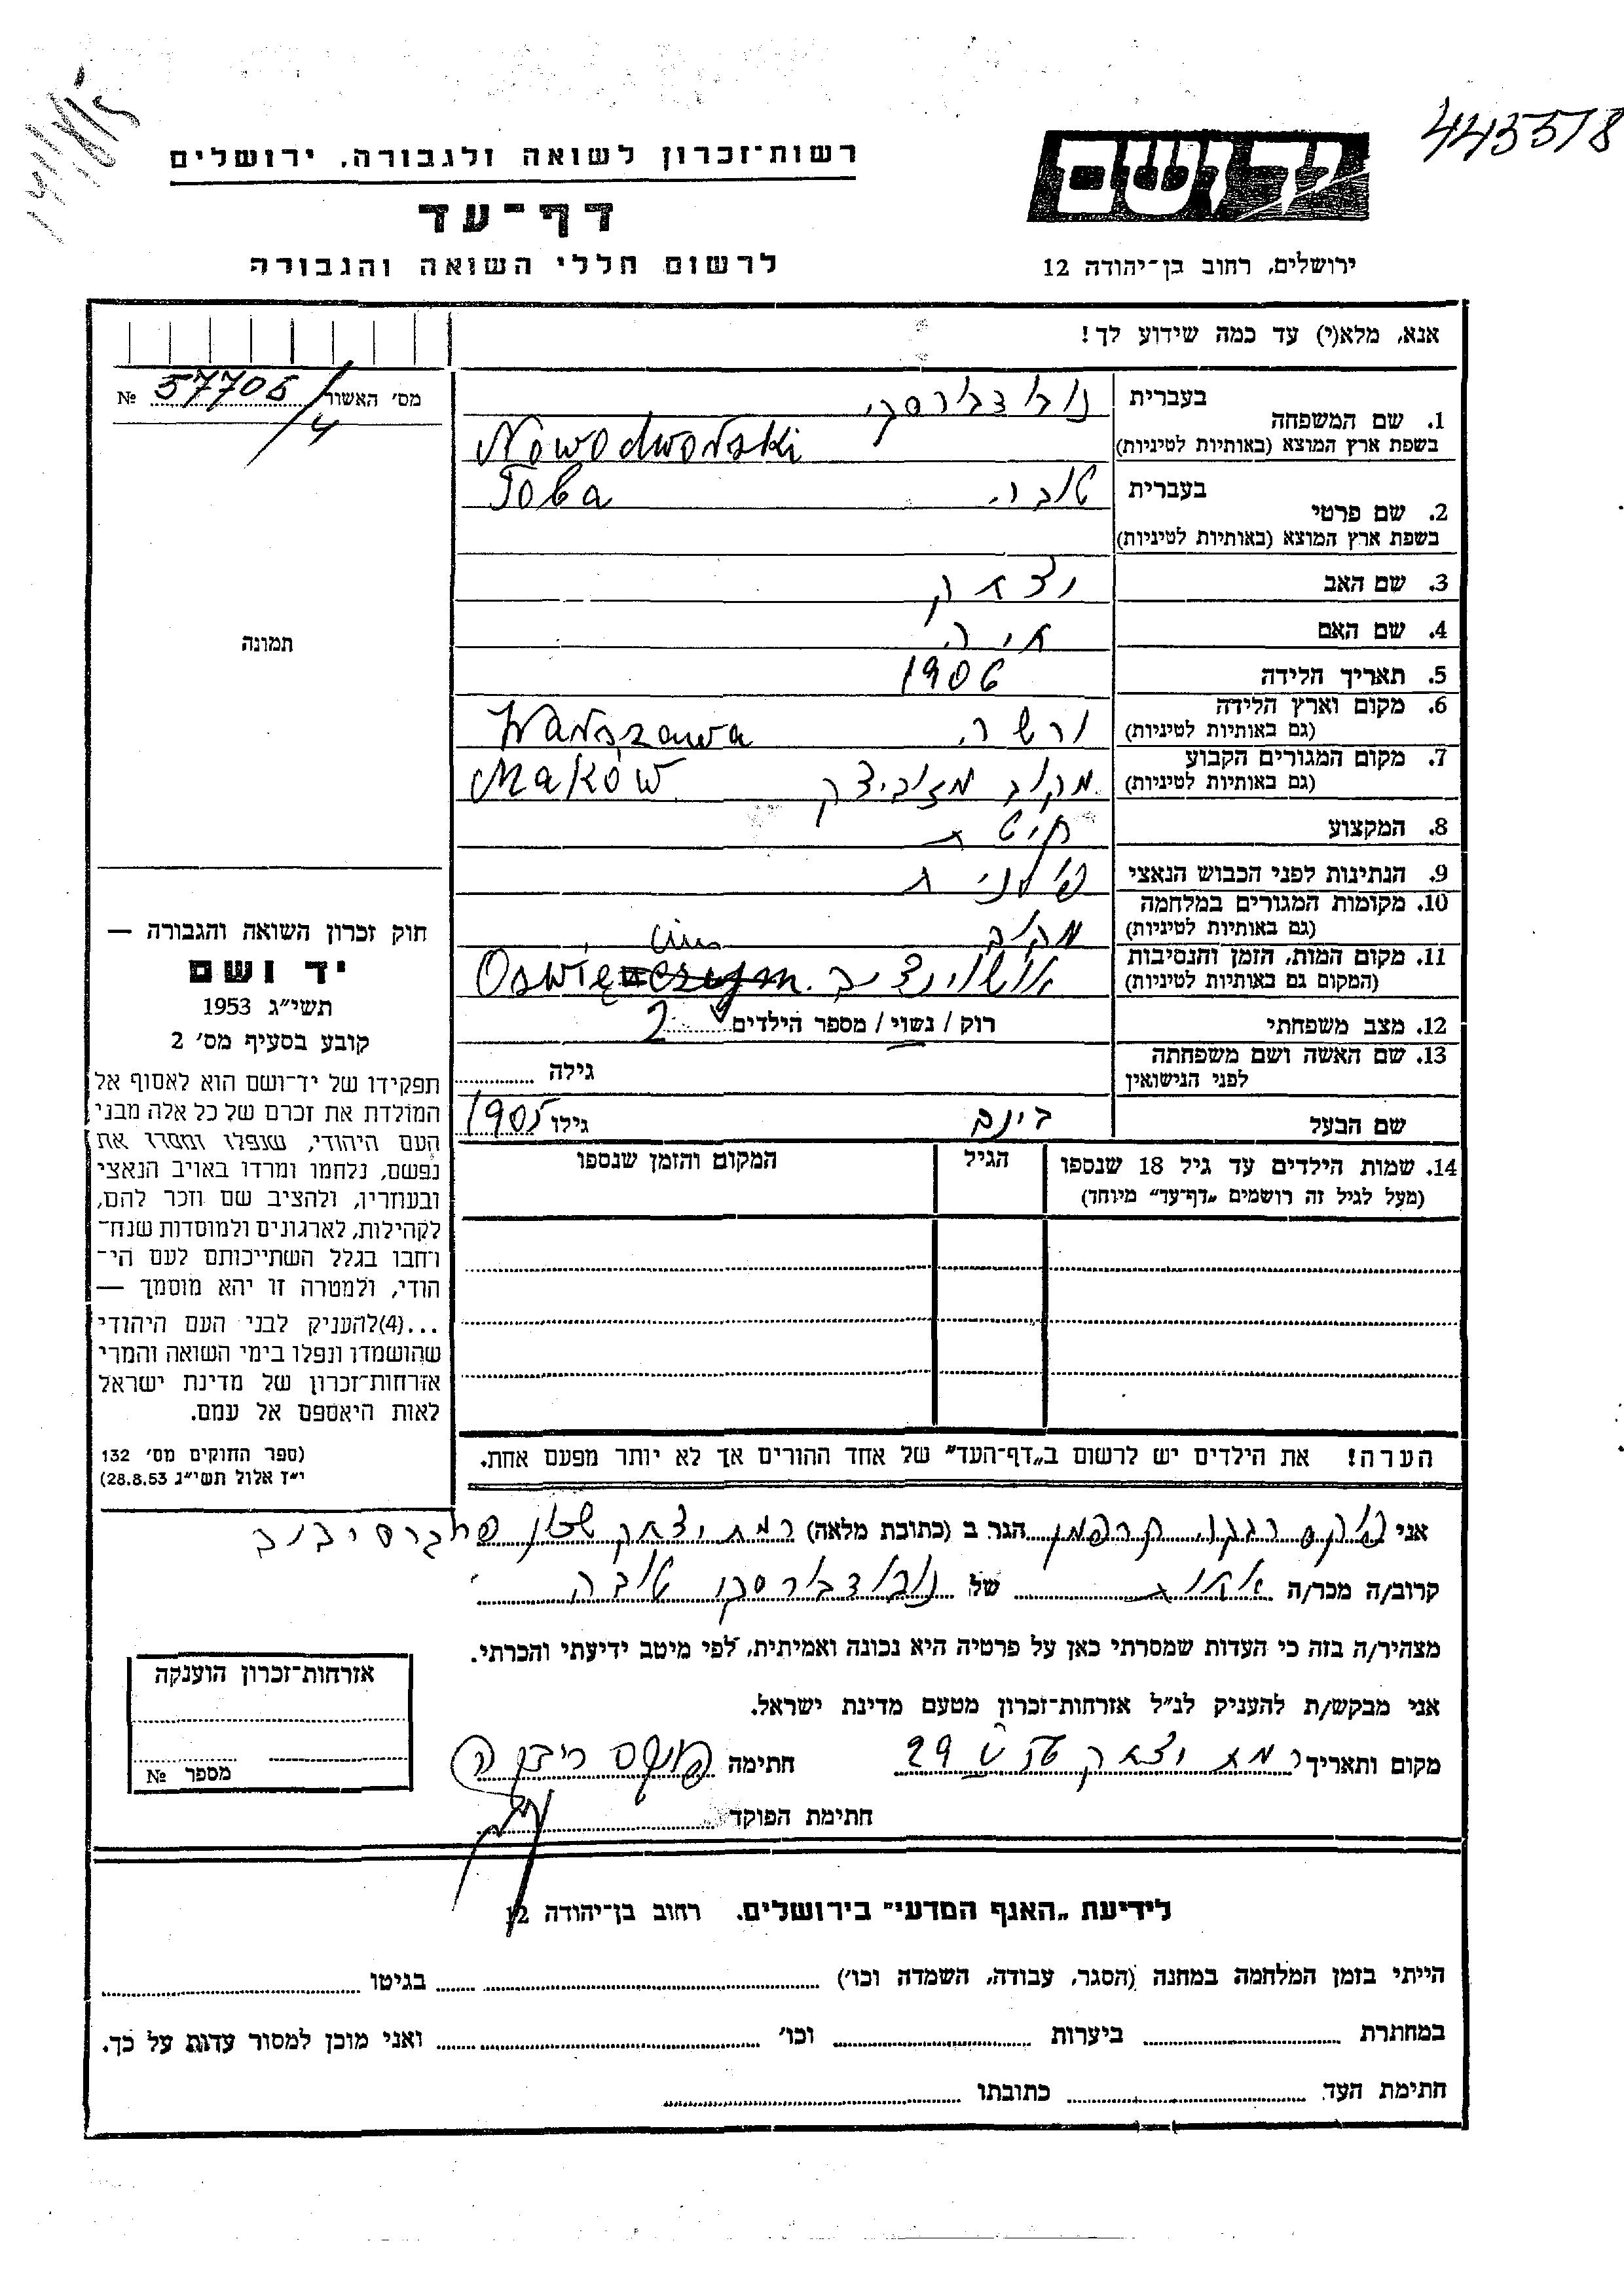 443578
רשות־זכרון לשואה ולגבורה, ירושלים
יד ושם
דף־עד
לרשום חללי השואה והגבורה
ירושלים, רחוב בן־יהודה 12
אנא, מלא(י) עד כמה שידוע לך!
מס׳ האשור 57705/4 №
1. שם המשפחה בעברית נובודבורסקי
בשפת ארץ המוצא (באותיות לטיניות) Nowodworski
2. שם פרטי בעברית טובה Toba
בשפת ארץ המוצא (באותיות לטיניות)
3. שם האב יצחק
4. שם האם חיה
5. תאריך הלידה 1906
6. מקום וארץ הלידה (גם באותיות לטיניות) ורשה Warszawa
7. מקום המגורים הקבוע (גם באותיות לטיניות) מקוב מזוביצק Maków
8. המקצוע
9. הנתינות לפני הכבוש הנאצי פולנית
10. מקומות המגורים במלחמה (גם באותיות לטיניות) מקוב
11. מקום המות, הזמן והנסיבות (המקום גם באותיות לטיניות) אושוינצים Oswięncim
12. מצב משפחתי רוק / נשוי / מספר הילדים 2
13. שם האשה ושם משפחתה לפני הנישואין גילה
שם הבעל בינם גילו 1905
14. שמות הילדים עד גיל 18 שנספו הגיל המקום והזמן שנספו
(מעל לגיל זה רושמים „דף־עד” מיוחד)
הערה! את הילדים יש לרשום ב„דף־העד” של אחד ההורים אך לא יותר מפעם אחת.
תמונה
חוק זכרון השואה והגבורה —
יד ושם
תשי״ג 1953
קובע בסעיף מס׳ 2
תפקידו של יד־ושם הוא לאסוף אל
המולדת את זכרם של כל אלה מבני
העם היהודי, שנפלו ומסרו את
נפשם, נלחמו ומרדו באויב הנאצי
ובעוזריו, ולהציב שם וזכר להם,
לקהילות, לארגונים ולמוסדות שנח־
רחבו בגלל השתייכותם לעם הי־
הודי, ולמטרה זו יהא מוסמך —
...(4)להעניק לבני העם היהודי
שהושמדו ונפלו בימי השואה והמרי
אזרחות־זכרון של מדינת ישראל
לאות היאספם אל עמם.
(ספר החוקים מס׳ 132
י״ז אלול תשי״ג 28.8.53)
אני פוקס רבקה הגר ב (כתובת מלאה) רמת יצחק
קרוב/ה מכר/ה אחות של נובודבורסקי טובה
מצהיר/ה בזה כי העדות שמסרתי כאן על פרטיה היא נכונה ואמיתית, לפי מיטב ידיעתי והכרתי.
אני מבקש/ת להעניק לנ״ל אזרחות־זכרון מטעם מדינת ישראל.
מקום ותאריך רמת יצחק 29 חתימה פוקס רבקה
חתימת הפוקד
אזרחות־זכרון הוענקה
מספר №
לידיעת „האגף המדעי” בירושלים, רחוב בן־יהודה 12
הייתי בזמן המלחמה במחנה (הסגר, עבודה, השמדה וכו׳) בגיטו
במחתרת ביערות וכו׳ ואני מוכן למסור עדות על כך.
חתימת העד כתובתו